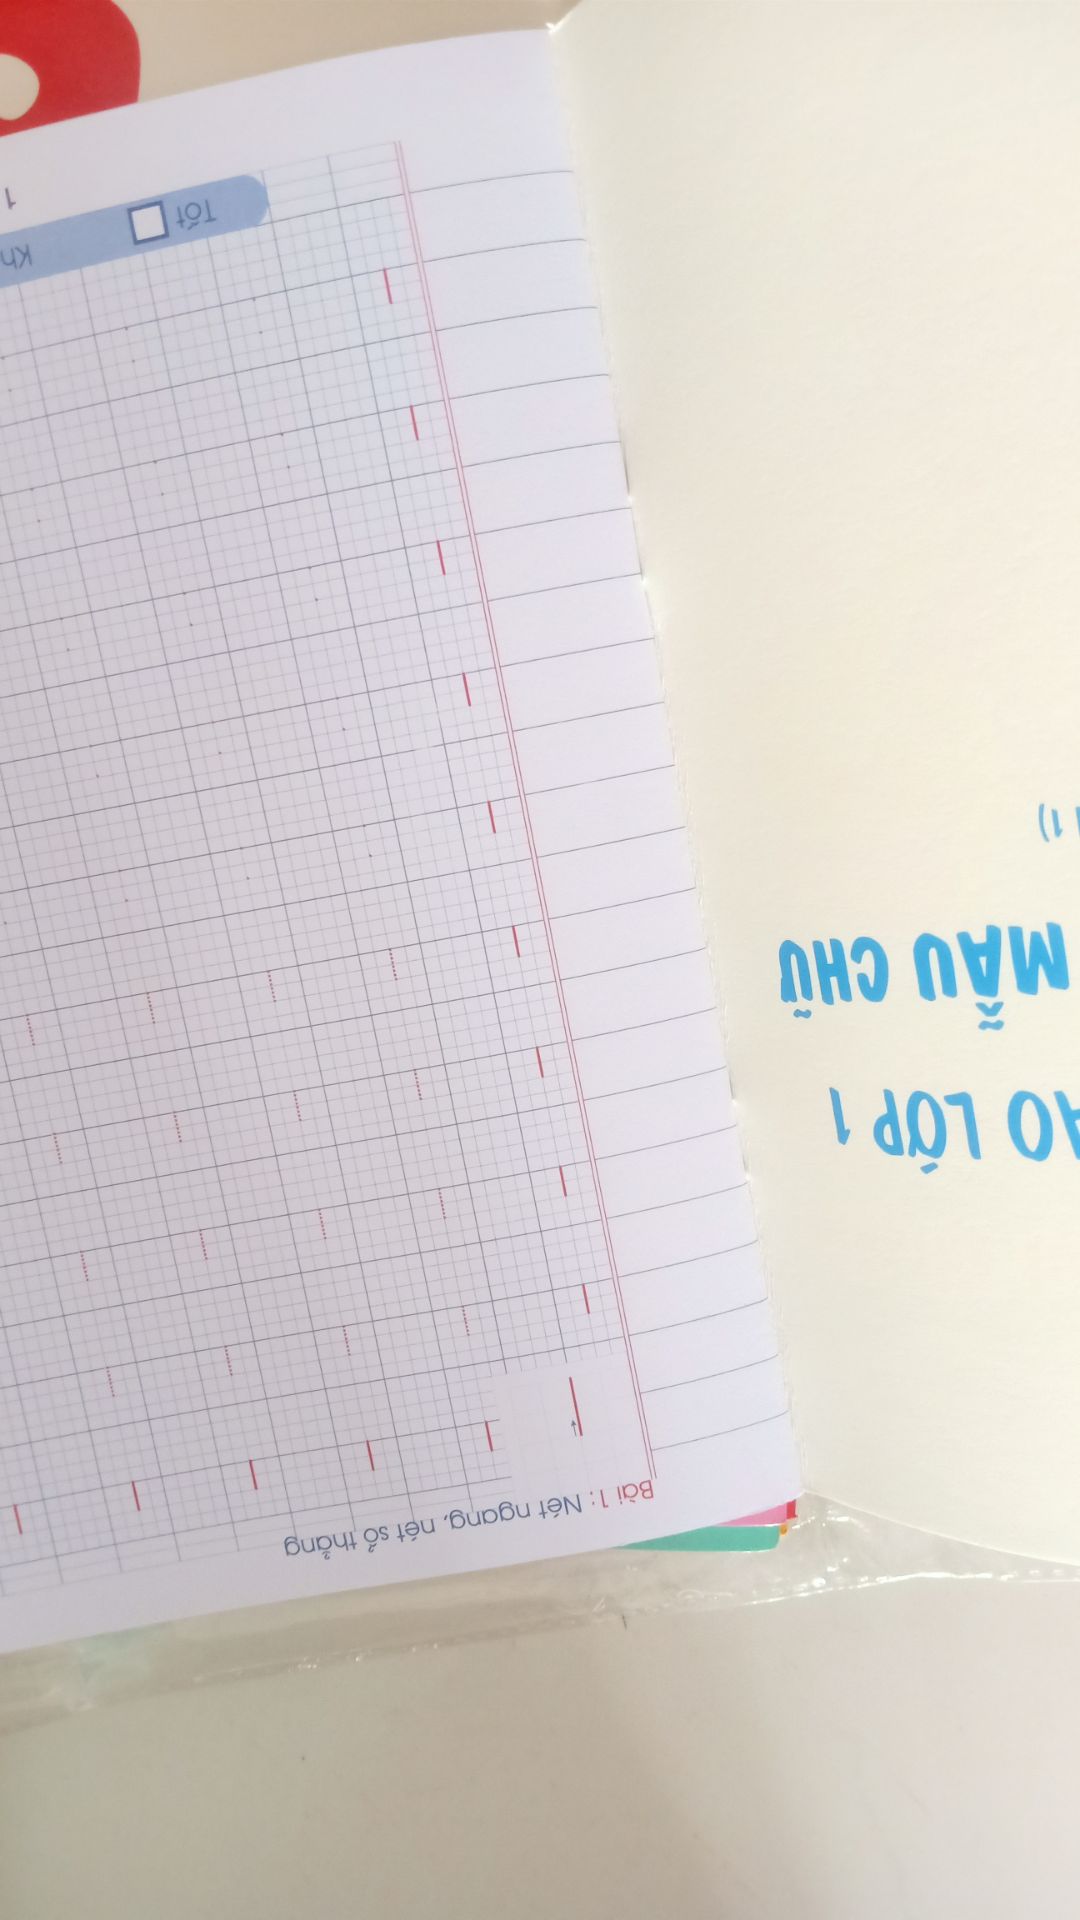 Bài 1: Nét ngang, nét sổ thẳng
Tốt
1
LỚP 1
MẪU CHỮ
1)